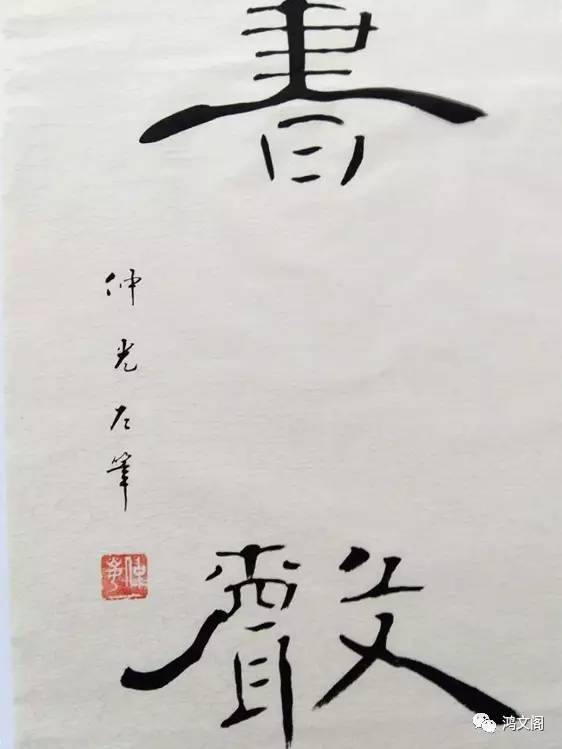 書聲
仲光左筆
鸿文阁